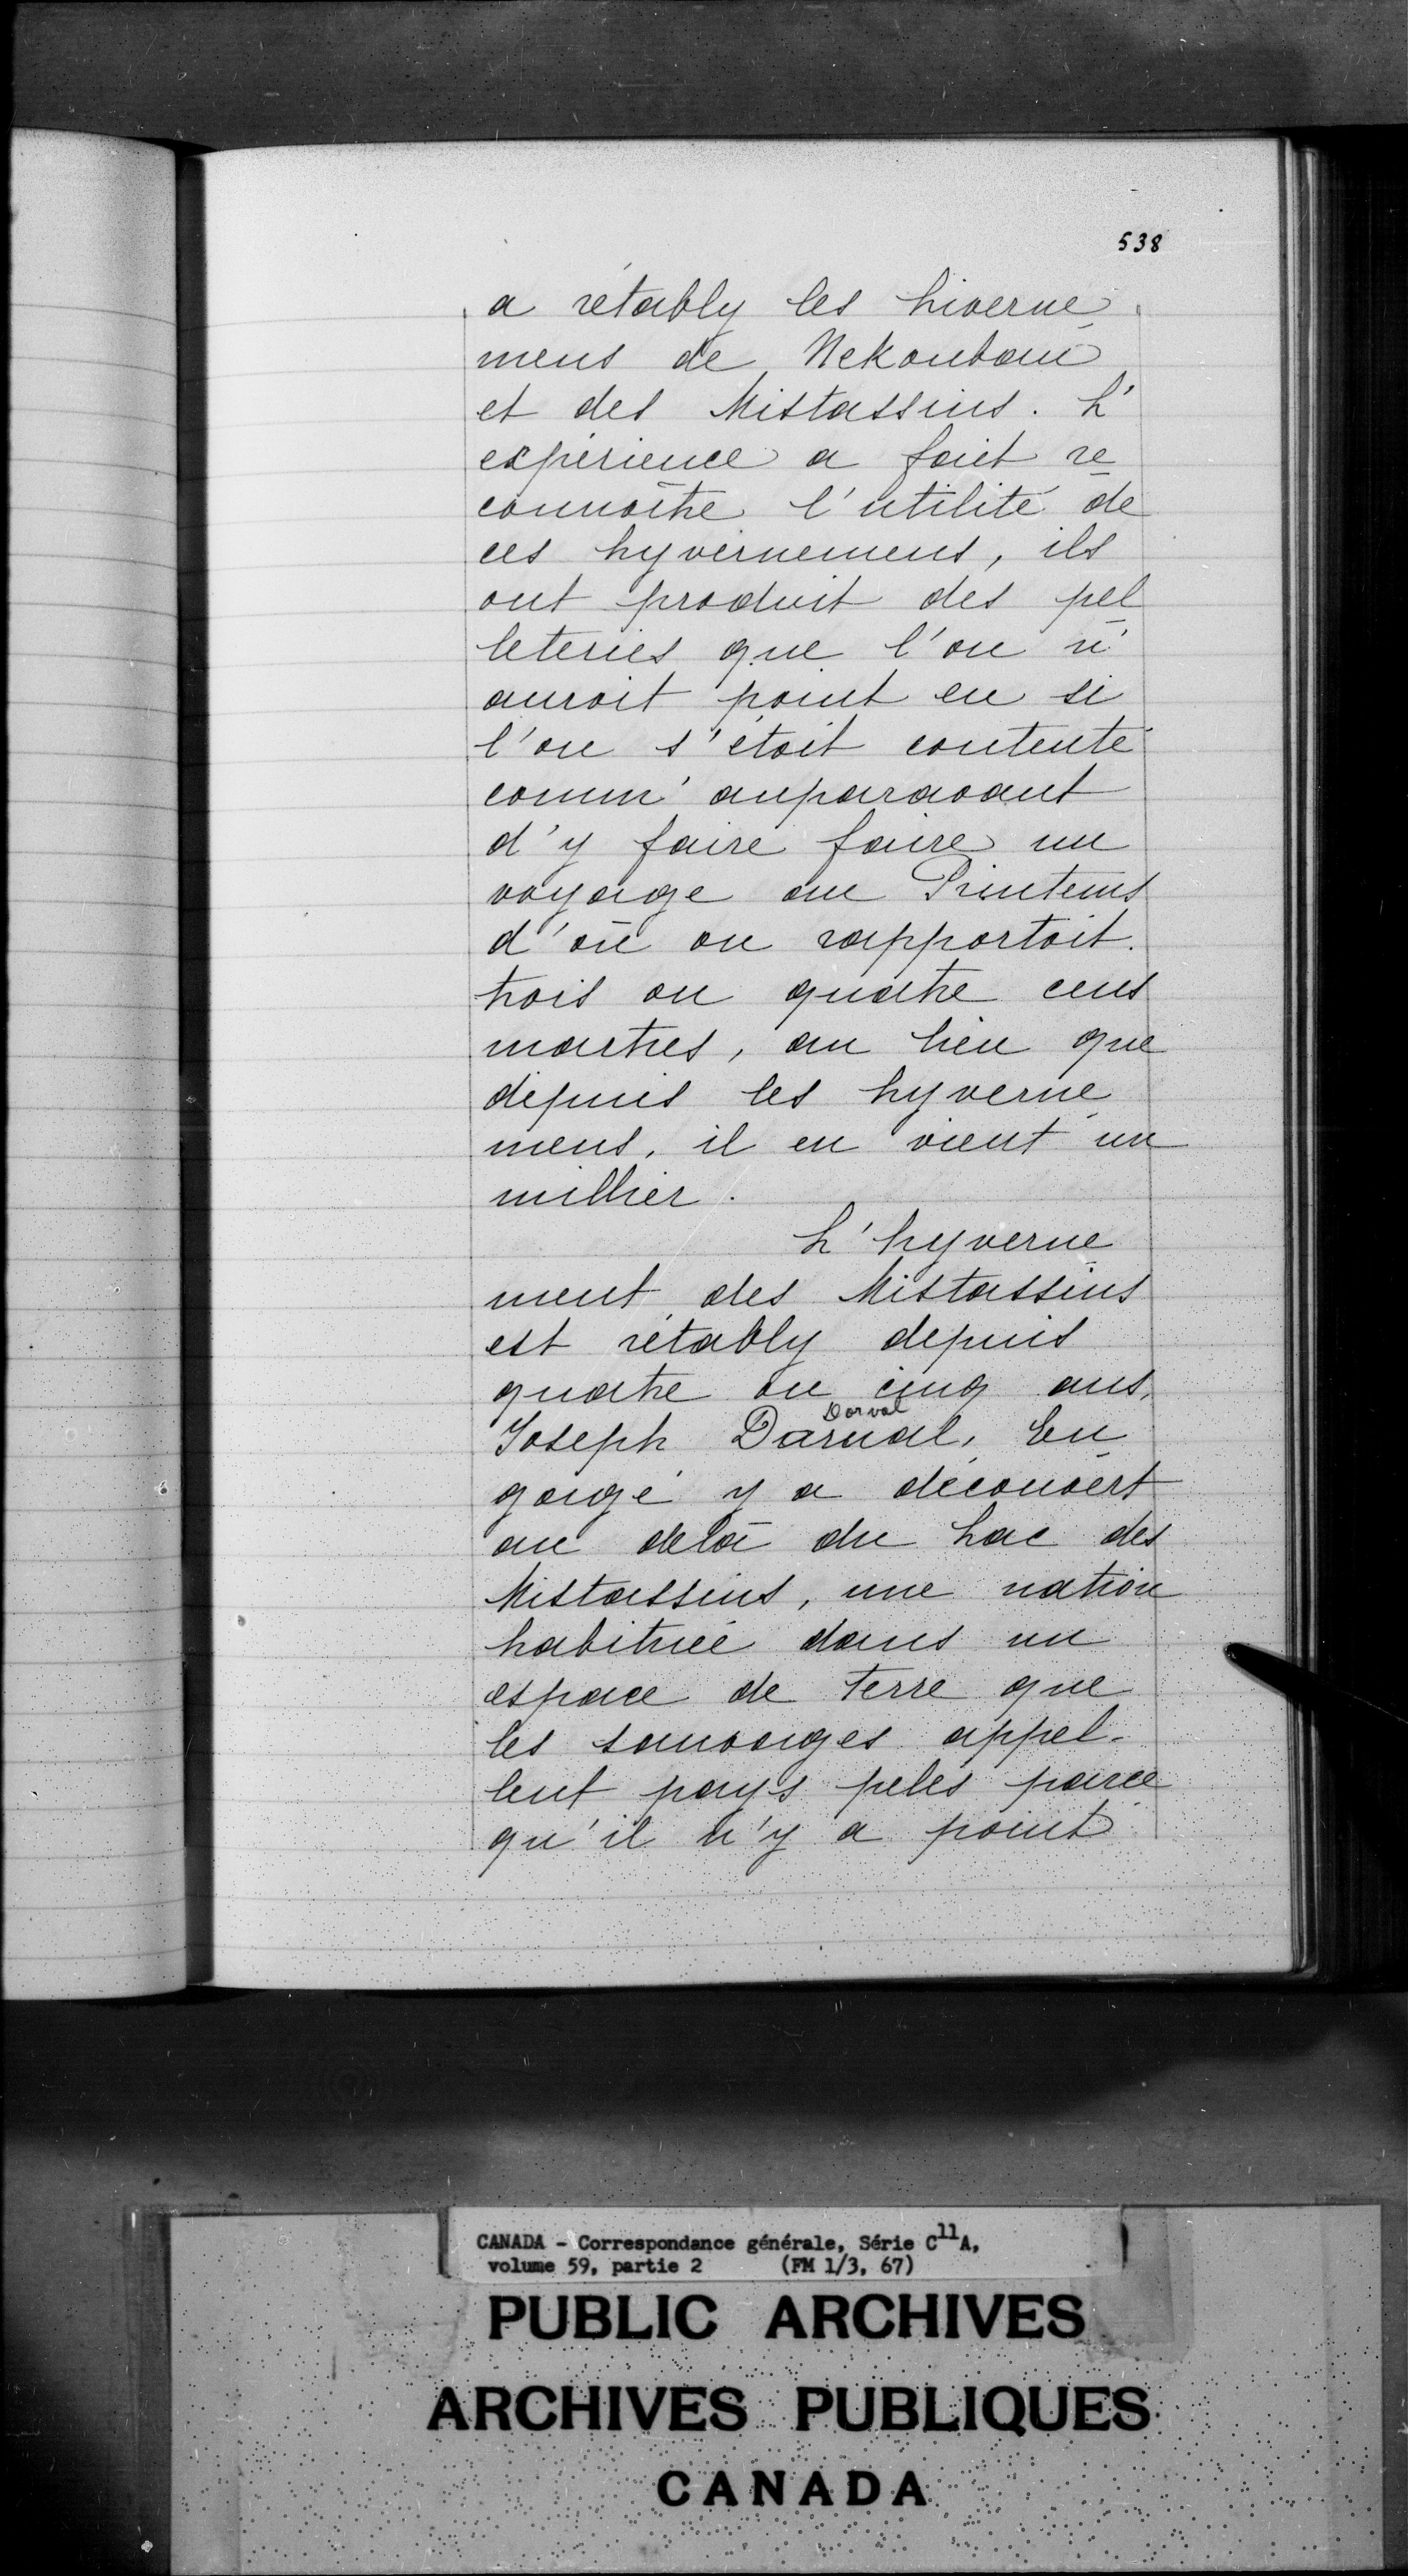 538
a rétably les hiverne
mens de Nekoubau
et des Mistassins. L'
expérience a fait re
connoître l'utilité de
ces hyvernemens, ils
ont produit des pel
leteries que l'on n'
auroit point eu si
l'on s'étoit contenté
comm' auparavant
d'y faire faire un
voyage au Printems
d'où on rapportoit
trois ou quatre cens
martres, au lieu que
depuis les hyverne
mens, il en vient un
millier.
L'hyverne
ment des Mistassins
est rétably depuis
quatre ou cinq ans,
Dorval
Joseph Darual, En
gagé y a découvert
au delà du Lac des
Mistassins, une nation
habituée dans un
espace de terre que
les sauvages appel-
lent pays pelés parce
qu'il n'y a point
CANADA - Correspondance générale, Série C11A,
volume 59, partie 2 (FM 1/3, 67)
PUBLIC ARCHIVES
ARCHIVES PUBLIQUES
CANADA